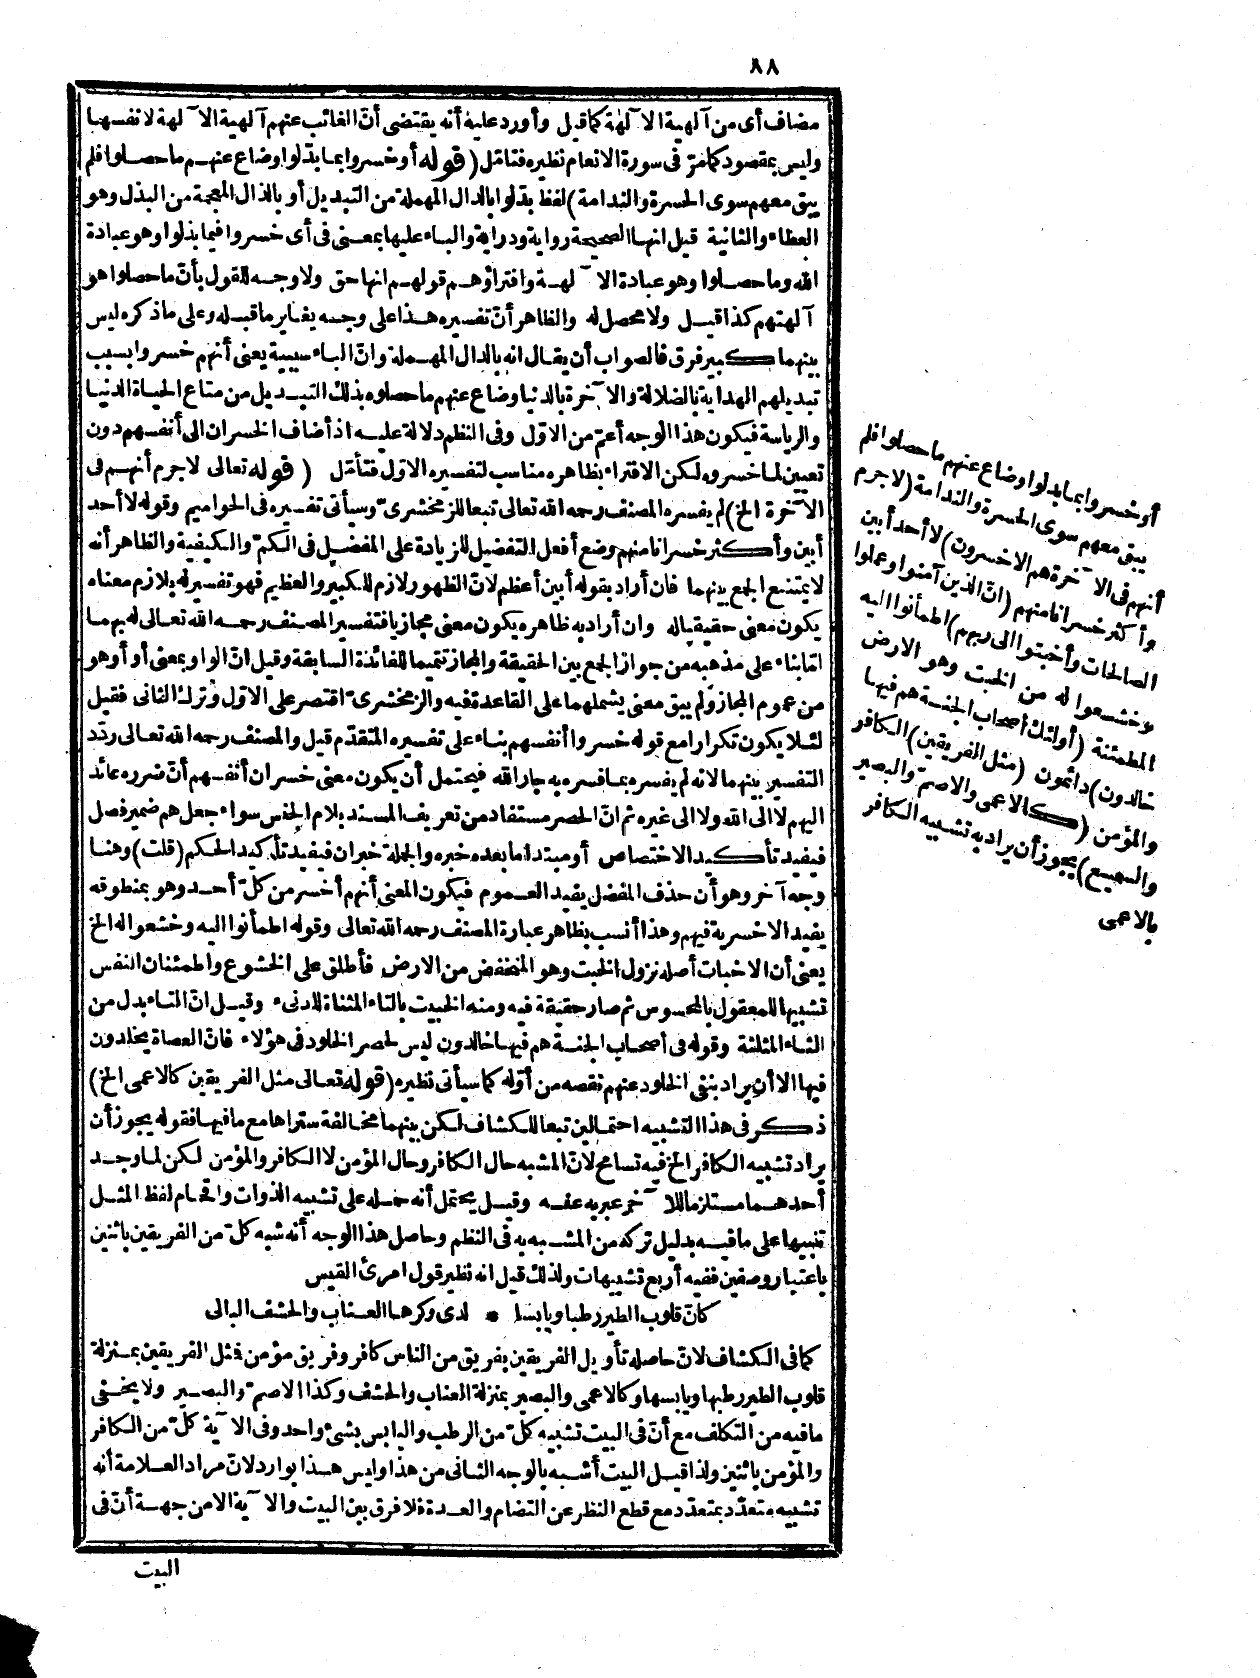 ٨٨
مضاف أى من آلهية الآلهة كما قيل وأورد عليه أنه يقتضى أنّ الغائب عنهم آلهية الآلهة لا نفسها
وليس بمقصود كما مرّ فى سورة الانعام نظيره فتأمّل (قوله أو خسروا بما بذلوا وضاع عنهم ما حصلوا فلم
يبق معهم سوى الحسرة والندامة) لفظ بدّلوا بالدال المهملة من التبديل أو بالذال المعجمة من البذل وهو
العطاء والثانية قيل انها الصحيحة رواية ودراية والباء عليها بمعنى فى أى خسروا فيما بذلوا وهو عبادة
الله وما حصلوا وهو عبادة الآلهة وافتراؤهم قولهم انها حق ولا وجه للقول بأنّ ما حصلوا هو
آلهتهم كذا قيل ولا محصل له والظاهر أنّ تفسيره هذا على وجه يغاير ما قبله وعلى ما ذكره ليس
بينهما كبير فرق فالصواب أن يقال انه بالدال المهملة وانّ الباء سببية يعنى أنهم خسروا بسبب
تبديلهم الهداية بالضلالة والآخرة بالدنيا وضاع عنهم ما حصلوه بذلك التبديل من متاع الحياة الدنيا
والرياسة فيكون هذا الوجه أعمّ من الاوّل وفى النظم دلالة عليه اذ أضاف الخسران الى أنفسهم دون
تعيين لما خسروه لكن الافتراء بظاهره مناسب لتفسيره الاوّل فتأمّل (قوله تعالى لا جرم أنهم فى
الآخرة الخ) لم يفسره المصنف رحمه الله تعالى تبعا للزمخشرىّ وسيأتى تفسيره فى الحواميم وقوله لا أحد
أبين وأكثر خسرانا منهم وضع أفعل التفضيل للزيادة على المفضل فى الكمّ والكيفية والظاهر أنه
لا يمتنع الجمع بينهما فان أراد بقوله أبين أعظم لانّ الظهور لازم للكبير والعظيم فهو تفسير له بلازم معناه
يكون معنى حقيقيا له وان أراد به ظاهره يكون معنى مجازيا فتفسير المصنف رحمه الله تعالى له بهما
امّا بناء على مذهبه من جواز الجمع بين الحقيقة والمجاز تتميما للفائدة السابقة وقيل انّ الواو بمعنى أو أو هو
من عموم المجاز ولم يبق معنى يشملهما على القاعدة فيه والزمخشرىّ اقتصر على الاوّل وترك الثانى فقيل
لئلا يكون تكرارا مع قوله خسروا أنفسهم بناء على تفسيره المتقدّم قيل والمصنف رحمه الله تعالى ردّد
التفسير بينهما لانه لم يفسره بما فسره به جار الله فيحتمل أن يكون معنى خسران أنفسهم أنّ ضرره عائد
اليهم لا الى الله ولا الى غيره ثم انّ الحصر مستفاد من تعريف المسند بلام الجنس سواء جعل هم ضمير فصل
فيفيد تأكيد الاختصاص أو مبتدأ ما بعده خبره والجملة خبر ان فيفيد تأكيد الحكم (قلت) وهنا
وجه آخر وهو أن حذف المفضل يفيد العموم فيكون المعنى أنهم أخسر من كلّ أحد وهو بمنطوقه
يفيد الاخسرية فيهم وهذا أنسب بظاهر عبارة المصنف رحمه الله تعالى وقوله اطمأنوا اليه وخشعوا له الخ
يعنى أن الاخبات أصله نزول الخبت وهو المنخفض من الارض فأطلق على الخشوع واطمئنان النفس
تشبيها للمعقول بالمحسوس ثم صار حقيقة فيه ومنه الخبيت بالتاء المثناة للدنىء وقيل انّ التاء بدل من
الثاء المثلثة وقوله فى أصحاب الجنة هم فيها خالدون ليس لحصر الخلود فى هؤلاء فانّ العصاة يخلدون
فيها الا أن يراد بنفى الخلود عنهم نقصه من أوّله كما سيأتى نظيره (قوله تعالى مثل الفريقين كالاعمى الخ)
ذكر فى هذا التشبيه احتمالين تبعا للكشاف لكن بينهما مخالفة ستراها مع ما فيها فقوله يجوز أن
يراد تشبيه الكافر الخ فيه تسامح لانّ المشبه حال الكافر وحال المؤمن لا الكافر والمؤمن لكن لما وجد
أحدهما مستلزما للآخر عبر به عنه وقيل يحتمل أنه حمله على تشبيه الذوات واقحام لفظ المثل
تنبيها على ما فيه بدليل تركه من المشبه به فى النظم وحاصل هذا الوجه أنه شبه كلّ من الفريقين باثنين
باعتبار وصفين ففيه أربع تشبيهات ولذلك قيل انه نظير قول امرئ القيس
كانّ قلوب الطير رطبا ويابسا * لدى وكرها العناب والحشف البالى
كما فى الكشاف لانّ حاصله تأويل الفريقين بفريق من الناس كافر وفريق مؤمن فمثل الفريقين بمنزلة
قلوب الطير رطبها ويابسها وكالاعمى والبصير بمنزلة العناب والحشف وكذا الاصمّ والبصير ولا يخفى
ما فيه من التكلف مع أنّ فى البيت تشبيه كلّ من الرطب واليابس بشئ واحد وفى الآية كلّ من الكافر
والمؤمن باثنين ولذا قيل البيت أشبه بالوجه الثانى من هذا وليس هذا بوارد لانّ مراد العلامة أنه
تشبيه متعدّد بمتعدّد مع قطع النظر عن التضام والعدة فلا فرق بين البيت والآية الا من جهة أنّ فى
البيت
أو خسروا بما بدلوا وضاع عنهم ما حصلوا فلم
يبق معهم سوى الحسرة والندامة (لا جرم
أنهم فى الآخرة هم الاخسرون) لا أحد أبين
وأكثر خسرانا منهم (انّ الذين آمنوا وعملوا
الصالحات وأخبتوا الى ربهم) اطمأنوا اليه
وخشعوا له من الخبت وهو الارض
المطمئنة (أولئك أصحاب الجنة هم فيها
خالدون) دائمون (مثل الفريقين) الكافر
والمؤمن (كالاعمى والاصمّ والبصير
والسميع) يجوز أن يراد به تشبيه الكافر
بالاعمى